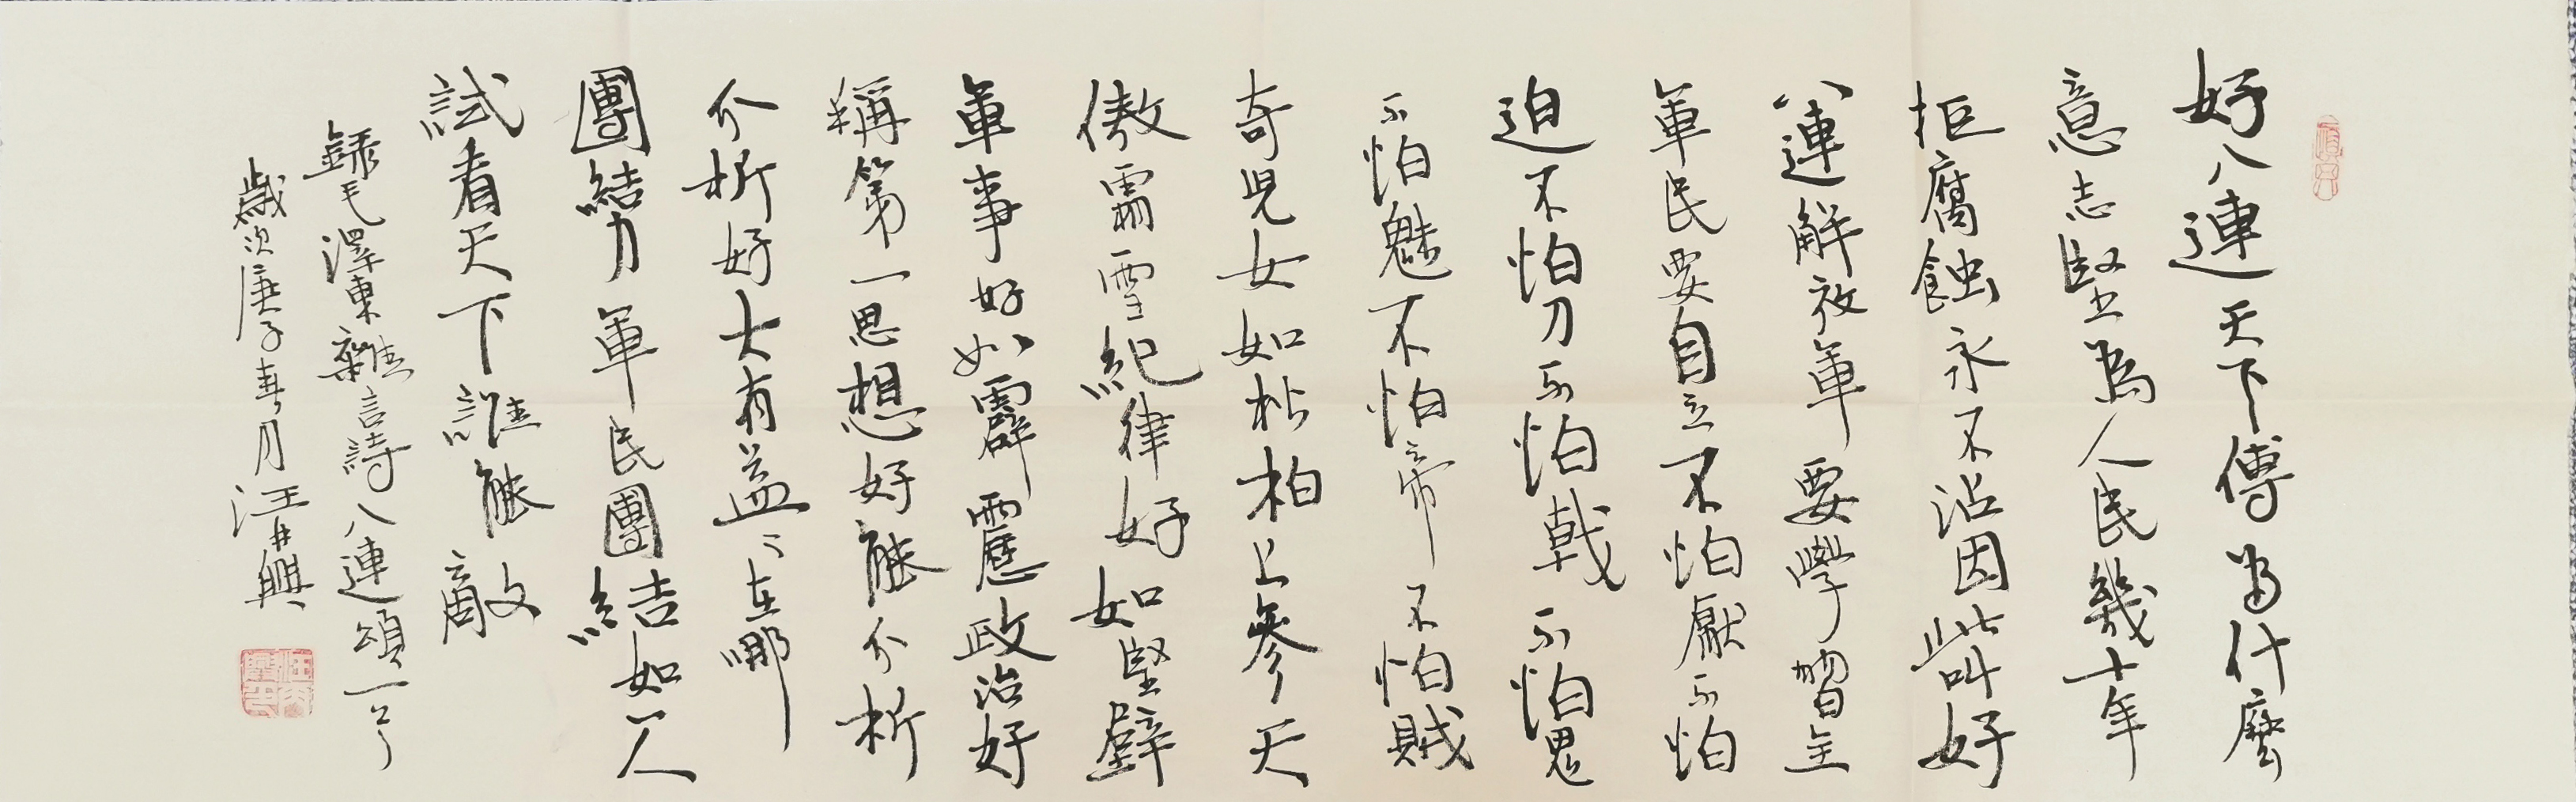 好八連天下傳爲什麽
意志堅爲人民幾十年
拒腐蝕永不沾因此叫好
八連解放軍要學習全
軍民要自立不怕壓不怕
迫不怕刀不怕戟不怕鬼
不怕魅不怕帝不怕賊
奇兒女如松柏上參天
傲霜雪紀律好如堅壁
軍事好如霹靂政治好
稱第一思想好能分析
分析好大有益〻在哪
團結力軍民團結如一人
試看天下誰能敵
錄毛澤東雜言詩八連頌一首
歲次庚子春月汪興